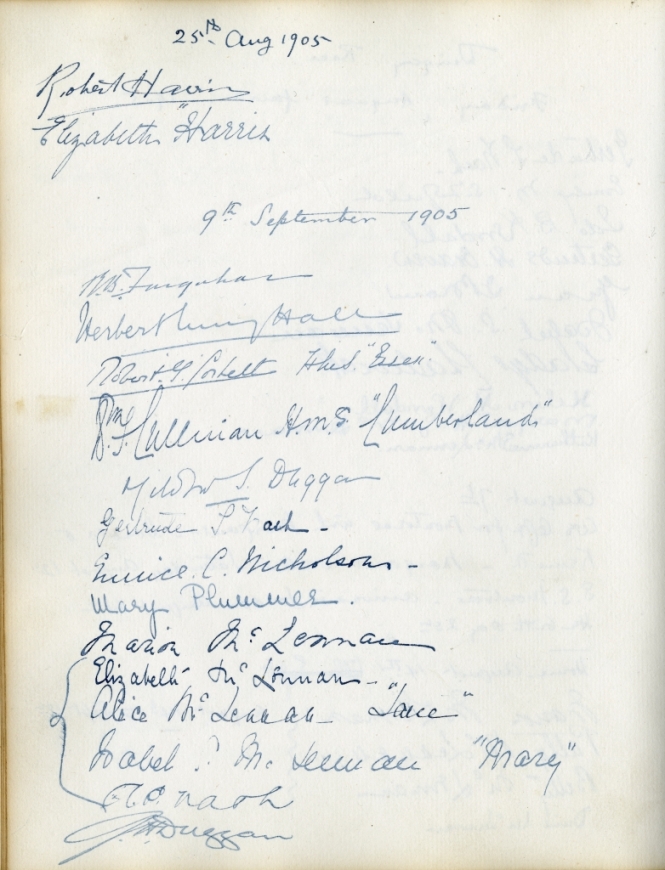 25th Aug 1905
Robert Harris
Elizabeth Harris
9th September 1905
Farquhar
Herbert Hall
Robert G. Corbett H.M.S. "Essex"
Cullinan H.M.S. "Cumberland"
Mildred S. Duggan
Gertrude F. Nash -
Eunice C. Nicholson -
Mary Plummer.
Marion McLennan
Elizabeth McLennan -
Alice McLennan -
Isabel McLennan
Nash
Duggan